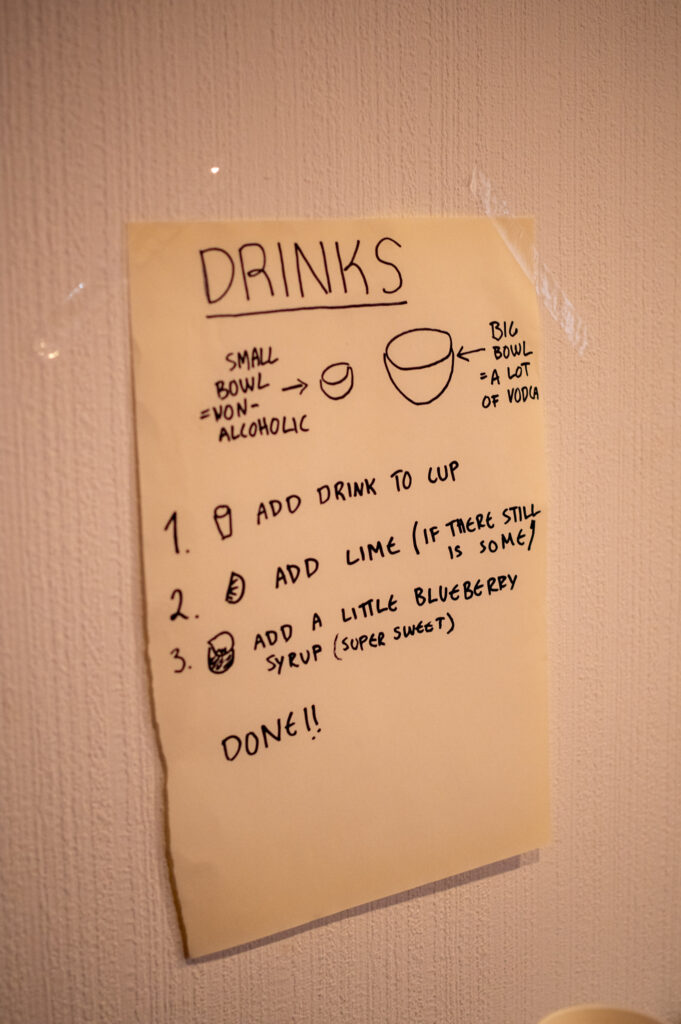 DRINKS
SMALL
BOWL
=NON-
ALCOHOLIC
BIG
BOWL
= A LOT
OF VODCA
1. ADD DRINK TO CUP
2. ADD LIME (IF THERE STILL
IS SOME)
3. ADD A LITTLE BLUEBERRY
SYRUP (SUPER SWEET)
DONE!!